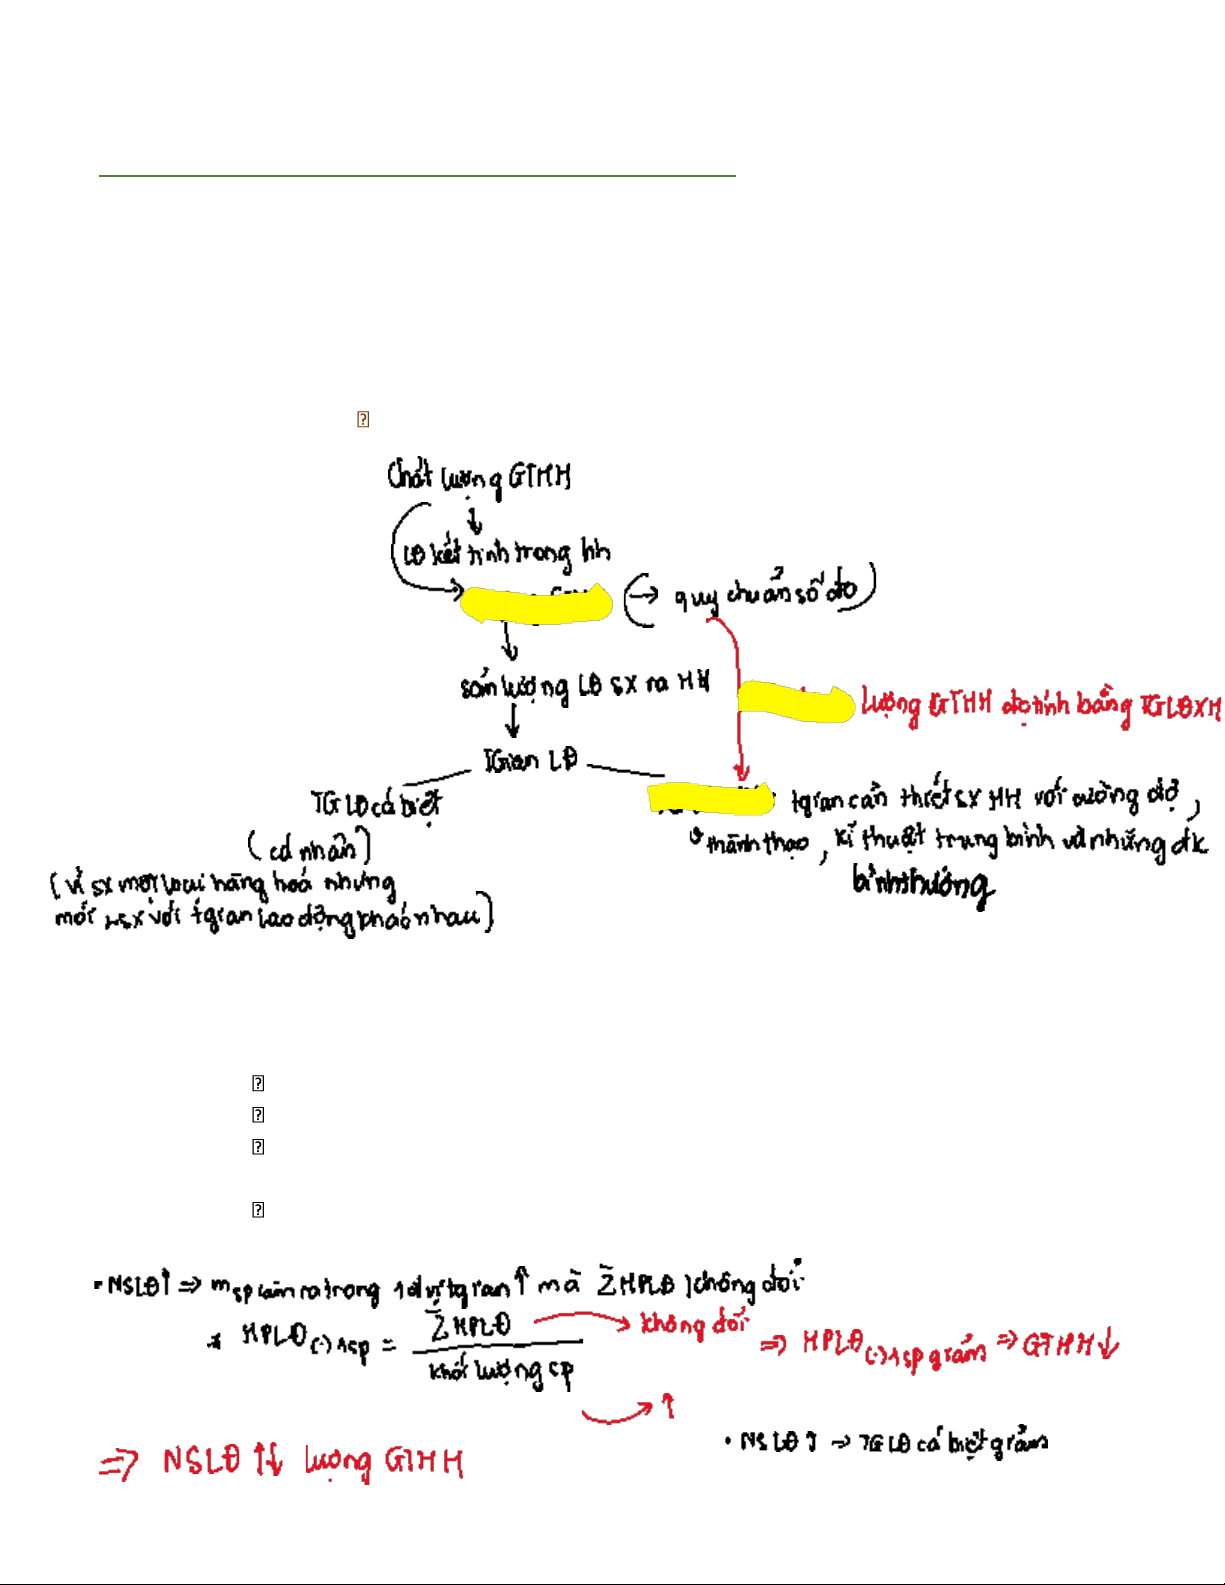 Chất lượng GTHH
LĐ kết tinh trong hh
(→ quy chuẩn số đo)
sản lượng LĐ sx ra HH
lượng GTHH đo tính bằng TGLĐXH
TGian LĐ
TG LĐ cá biệt
tgian cần thiết sx HH với cường độ,
thành thạo, kĩ thuật trung bình và những đk
bình thường
(cá nhân)
(vì sx mọi loại hàng hoá nhưng
mỗi sx với tgian lao động khác nhau)
• NSLĐ↑ ⇒ m sp làm ra trong 1 đvị tgian ↑ mà ΣHPLĐ không đổi
* HPLĐ (.) 1sp = ΣHPLĐ / khối lượng sp
→ không đổi
⇒ HPLĐ (.) 1 sp giảm ⇒ GTHH↓
→ ↑
• NSLĐ↑ ⇒ TGLĐ cá biệt giảm
⇒ NSLĐ ↑↓ lượng GTHH